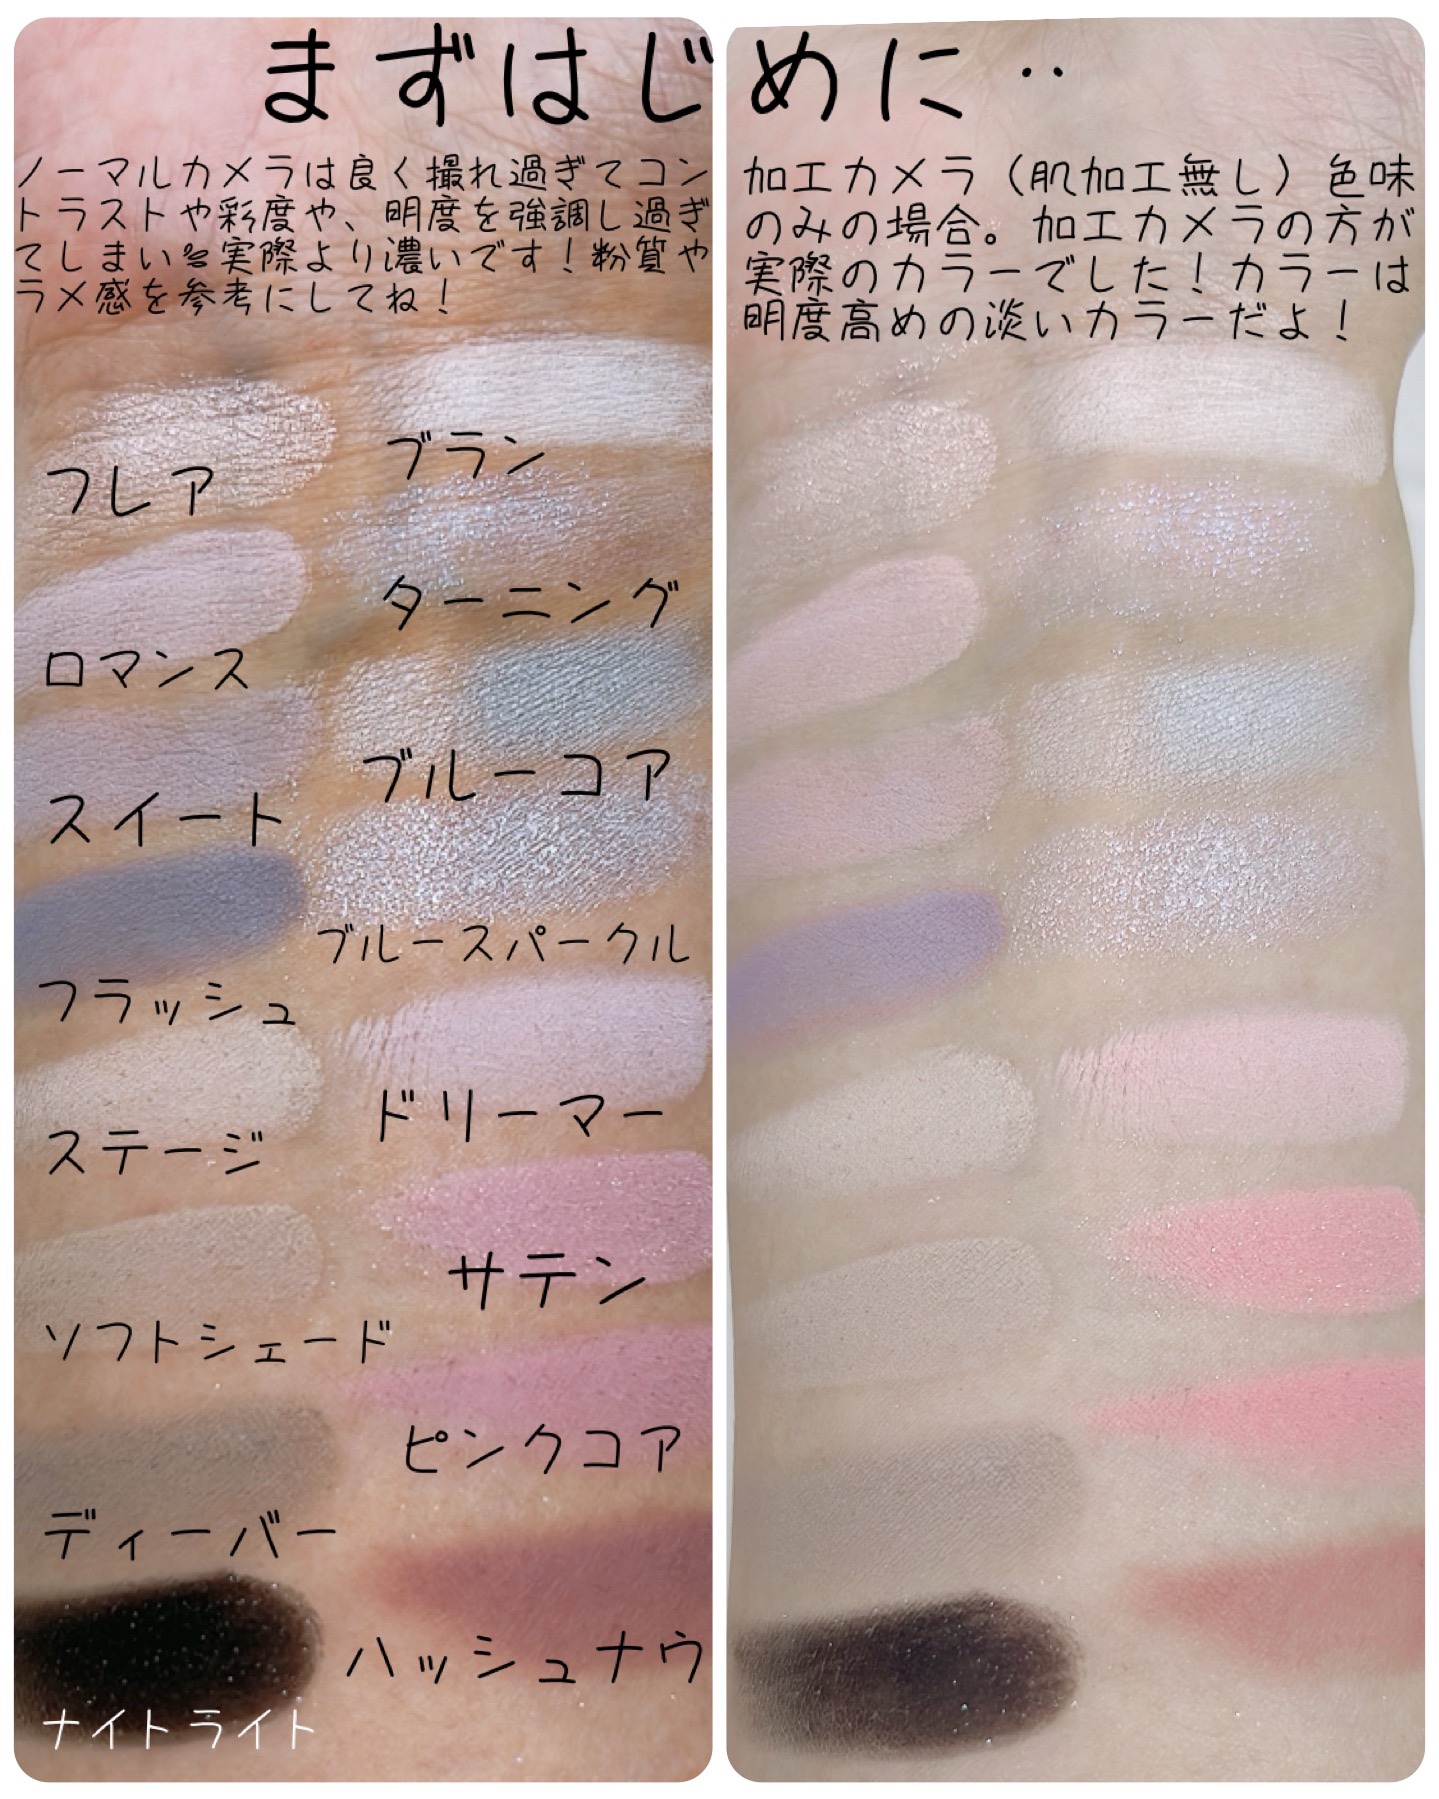 まずはじめに‥
ノーマルカメラは良く撮れ過ぎてコン
トラストや彩度や、明度を強調し過ぎ
てしまい💦実際より濃いです！粉質や
ラメ感を参考にしてね！
加工カメラ（肌加工無し）色味
のみの場合。加工カメラの方が
実際のカラーでした！カラーは
明度高めの淡いカラーだよ！
フレア
ブラン
ターニング
ロマンス
ブルーコア
スイート
ブルースパークル
フラッシュ
ドリーマー
ステージ
サテン
ソフトシェード
ピンクコア
ディーバー
ハッシュナウ
ナイトライト